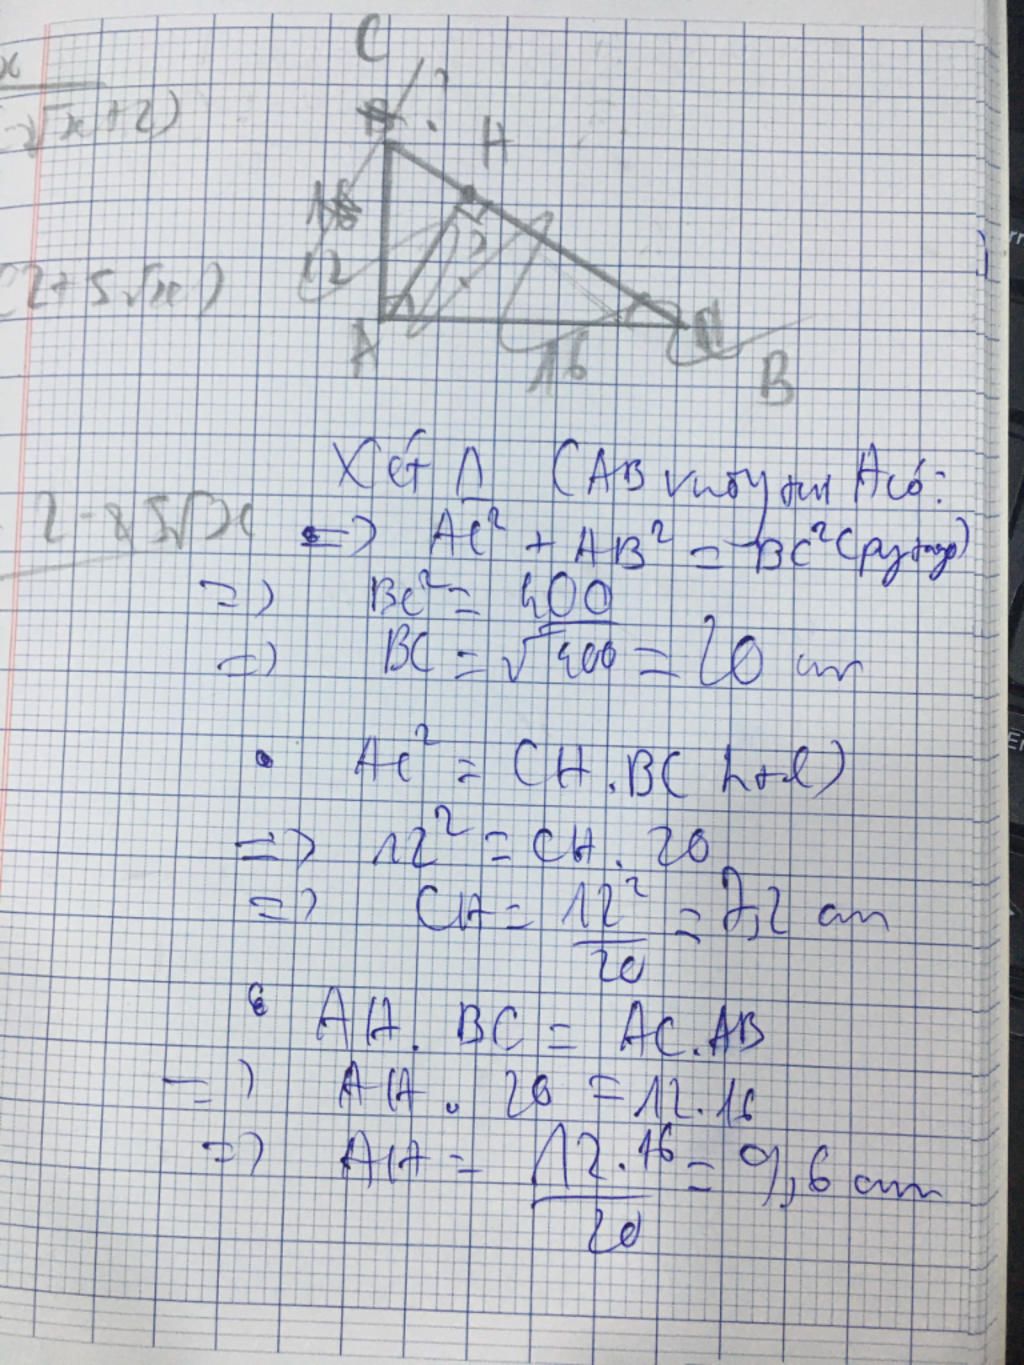 x
-√x+2)
C
H
12
A
16
B
2+5√x)
Xét Δ CAB vuông tại A có:
=> AC² + AB² = BC² (pytago)
=> BC² = 400
=> BC = √400 = 20 cm
• AC² = CH.BC htl)
=> 12² = CH. 20
=> CH = 12²/20 = 7,2 cm
• AH. BC = AC.AB
=> AH. 20 = 12.16
=> AH = 12.16/20 = 9,6 cm